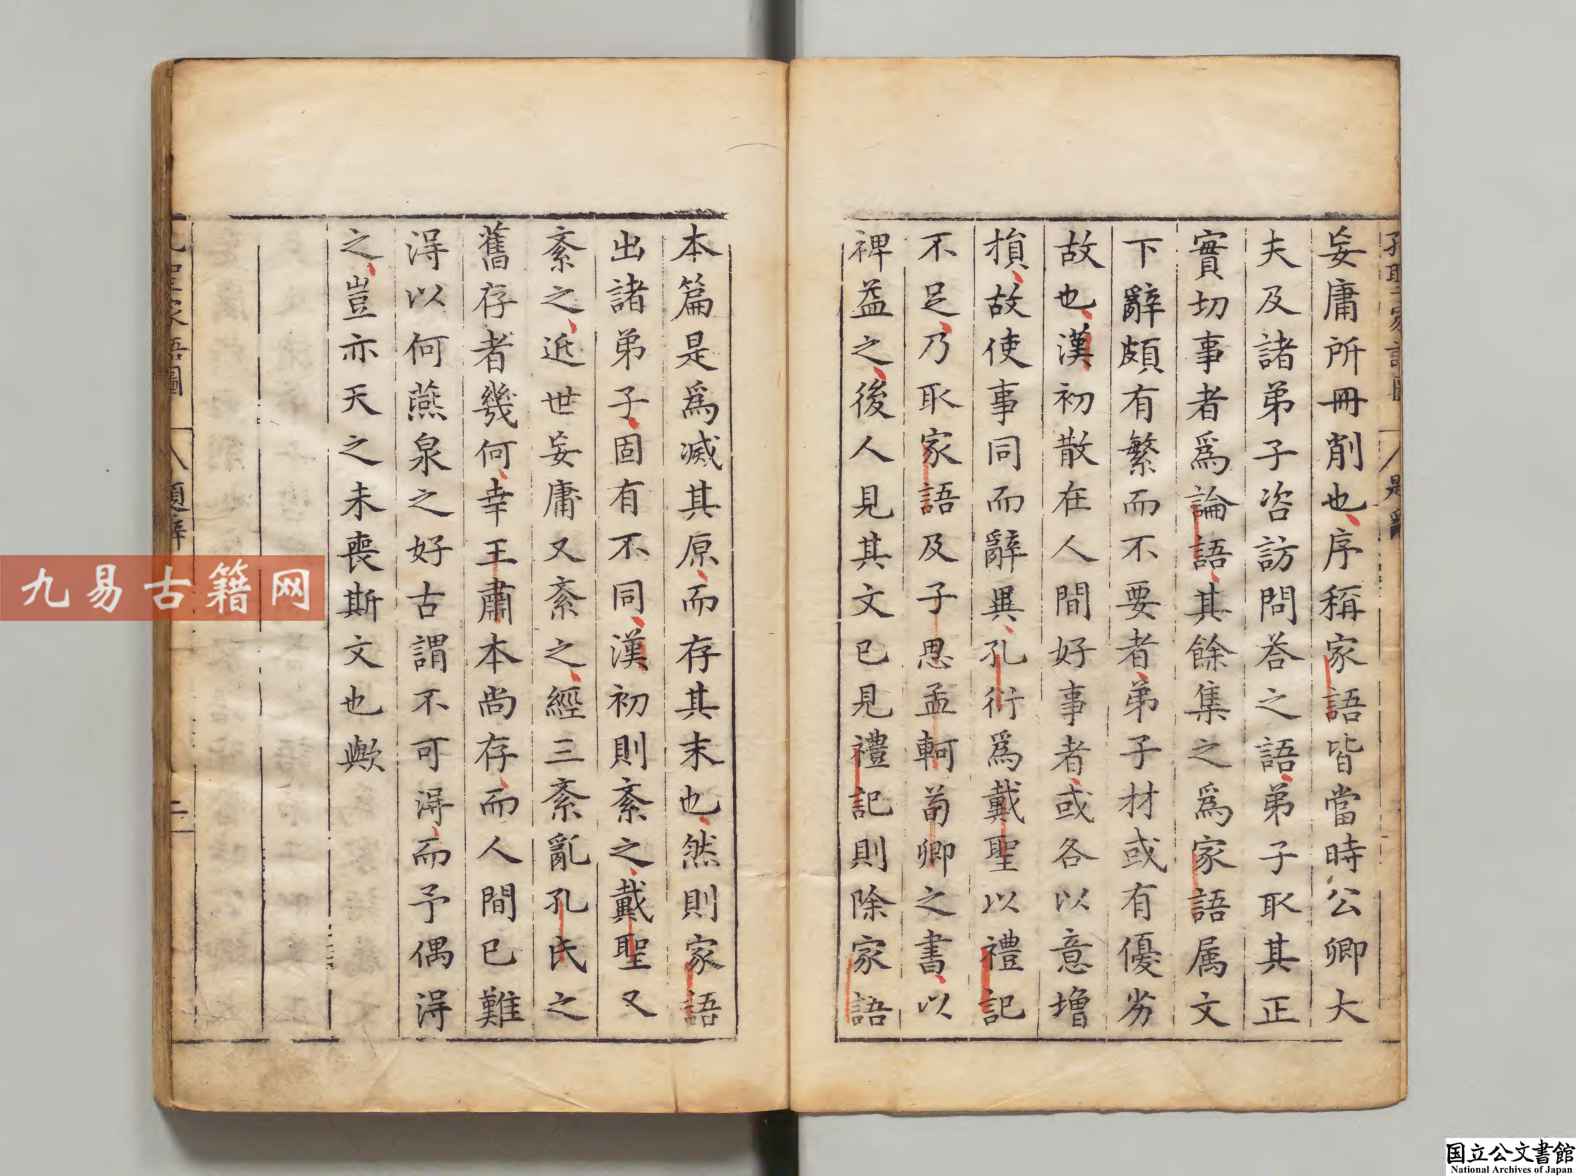 妄庸所冊削也序稱家語皆當時公卿大
夫及諸弟子咨訪問荅之語弟子取其正
實切事者爲論語其餘集之爲家語属文
下辭頗有繁而不要者弟子材或有優劣
故也漢初散在人間好事者或各以意增
損故使事同而辭異孔衍爲戴聖以禮記
不足乃取家語及子思孟軻荀卿之書以
裨益之後人見其文已見禮記則除家語
本篇是爲滅其原而存其末也然則家語
出諸弟子固有不同漢初則紊之戴聖又
紊之近世妄庸又紊之經三紊亂孔氏之
舊存者幾何幸王肅本尚存而人間已難
淂以何燕泉之好古謂不可淂而予偶淂
之豈亦天之未喪斯文也歟
題辭
九易古籍网
国立公文書館
National Archives of Japan